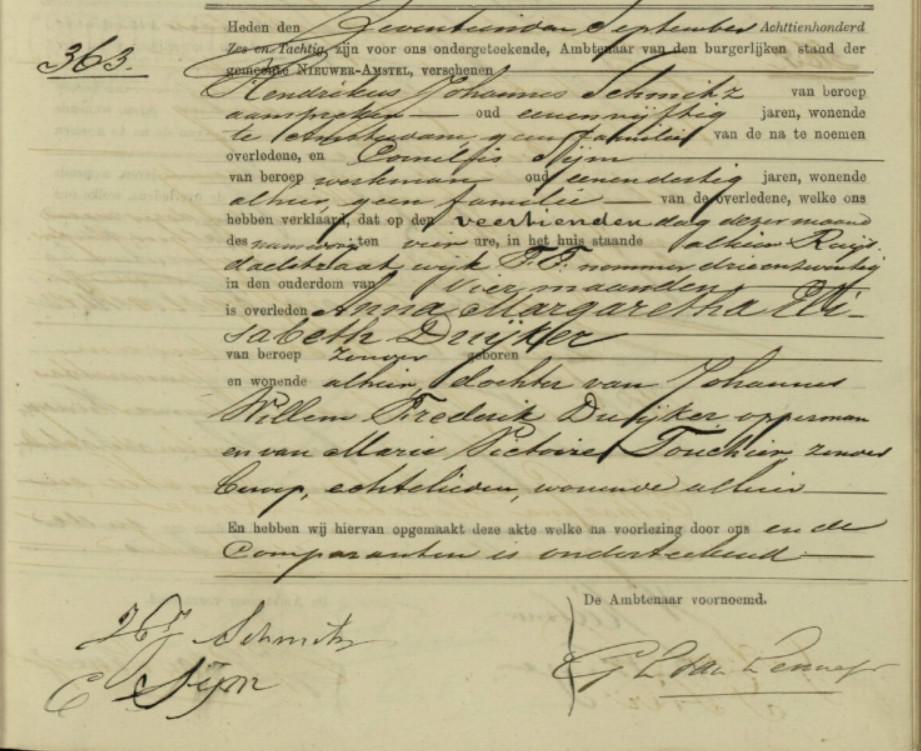 363.
Heden den Zeventienden September Achttienhonderd
Zes en Tachtig zijn voor ons ondergeteekende, Ambtenaar van den burgerlijken stand der
gemeente NIEUWER-AMSTEL, verschenen
Hendrikus Johannes Schmitz van beroep
aanspreker oud eenenvijftig jaren, wonende
te Amsterdam, geen familie van de na te noemen
overledene, en Cornelis Nijm
van beroep werkman oud eenendertig jaren, wonende
alhier, geen familie van de overledene, welke ons
hebben verklaard, dat op den veertienden dag dezer maand
des namiddag ten vier ure, in het huis staande alhier Ruijs
daelstraat wijk F.F. nommer drieentwintig
in den ouderdom van vier maanden
is overleden Anna Margaretha Eli-
sabeth Druijker
van beroep zonder geboren
en wonende alhier, dochter van Johannes
Willem Frederik Druijker opperman
en van Marie Victoire Touchier, zonder
beroep, echtelieden, wonende alhier
En hebben wij hiervan opgemaakt deze akte welke na voorlezing door ons en de
Comparanten is onderteekend
De Ambtenaar voornoemd.
HJ Schmitz
C Nijm